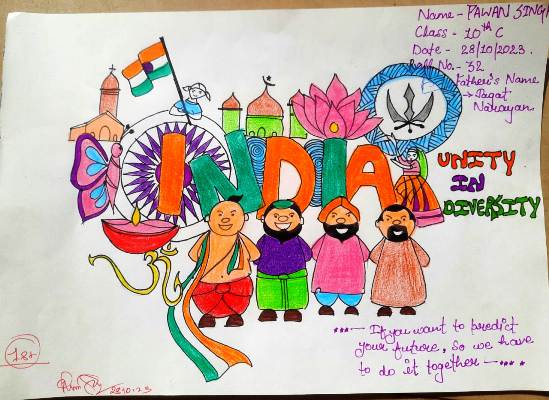 Name - PAWAN SINGH
Class - 10th C
Date - 28/10/2023.
Roll No. - 32
Father's Name
→ Jagat
Narayan
INDIA
UNITY
IN
DIVERSITY
ॐ
If you want to predict
your future, so we have
to do it together
1st
28.10.23